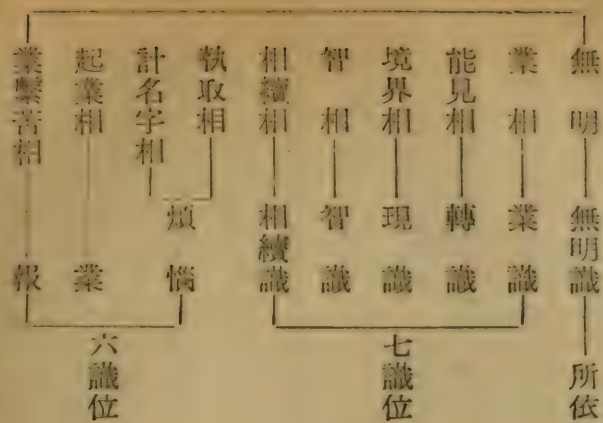 無明 無明識 所依
業相 業識
能見相 轉識
境界相 現識
智相 智識
相續相 相續識
七識位
執取相
計名字相
煩惱
起業相 業
業繫苦相 報
六識位